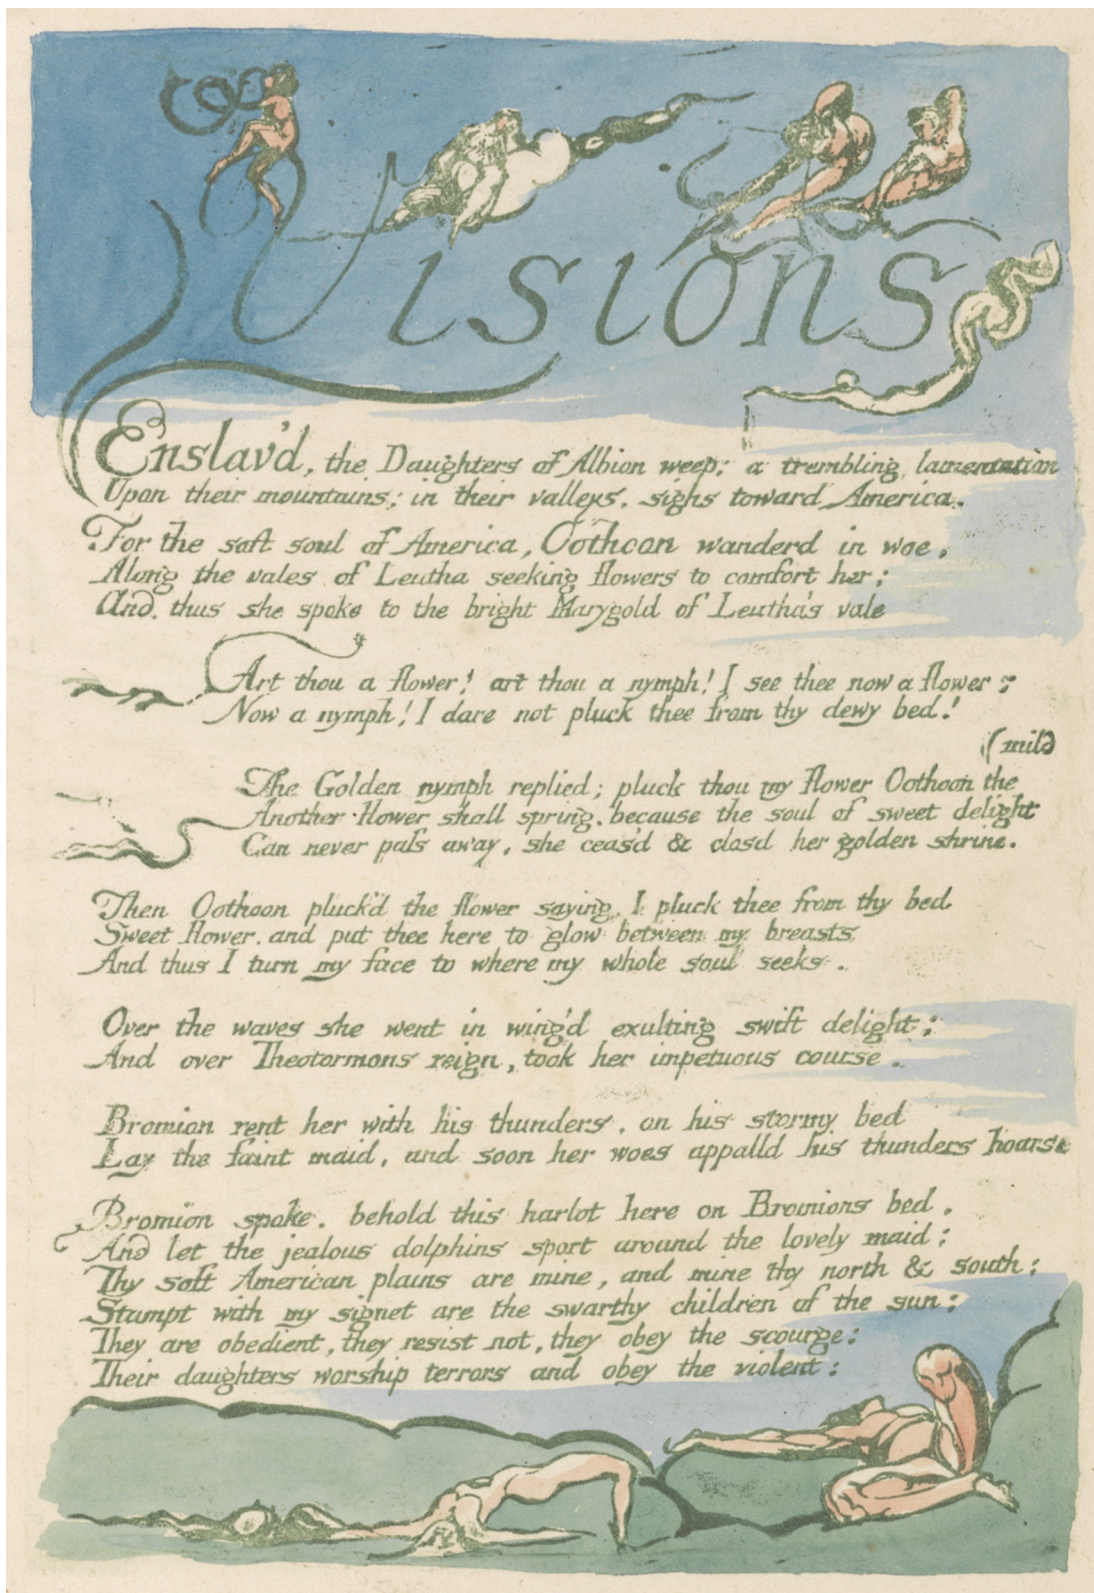 Visions
Enslav'd, the Daughters of Albion weep: a trembling lamentation
Upon their mountains; in their valleys, sighs toward America.
For the soft soul of America, Oothoon wanderd in woe,
Along the vales of Leutha seeking flowers to comfort her;
And thus she spoke to the bright Marygold of Leutha's vale
Art thou a flower! art thou a nymph! I see thee now a flower;
Now a nymph! I dare not pluck thee from thy dewy bed!
(mild
The Golden nymph replied; pluck thou my flower Oothoon the
Another flower shall spring, because the soul of sweet delight
Can never pass away. she ceas'd & closd her golden shrine.
Then Oothoon pluck'd the flower saying, I pluck thee from thy bed
Sweet flower. and put thee here to glow between my breasts
And thus I turn my face to where my whole soul seeks.
Over the waves she went in wing'd exulting swift delight;
And over Theotormons reign, took her impetuous course.
Bromion rent her with his thunders. on his stormy bed
Lay the faint maid, and soon her woes appalld his thunders hoarse
Bromion spoke. behold this harlot here on Bromions bed,
And let the jealous dolphins sport around the lovely maid;
Thy soft American plains are mine, and mine thy north & south:
Stampt with my signet are the swarthy children of the sun:
They are obedient, they resist not, they obey the scourge:
Their daughters worship terrors and obey the violent: